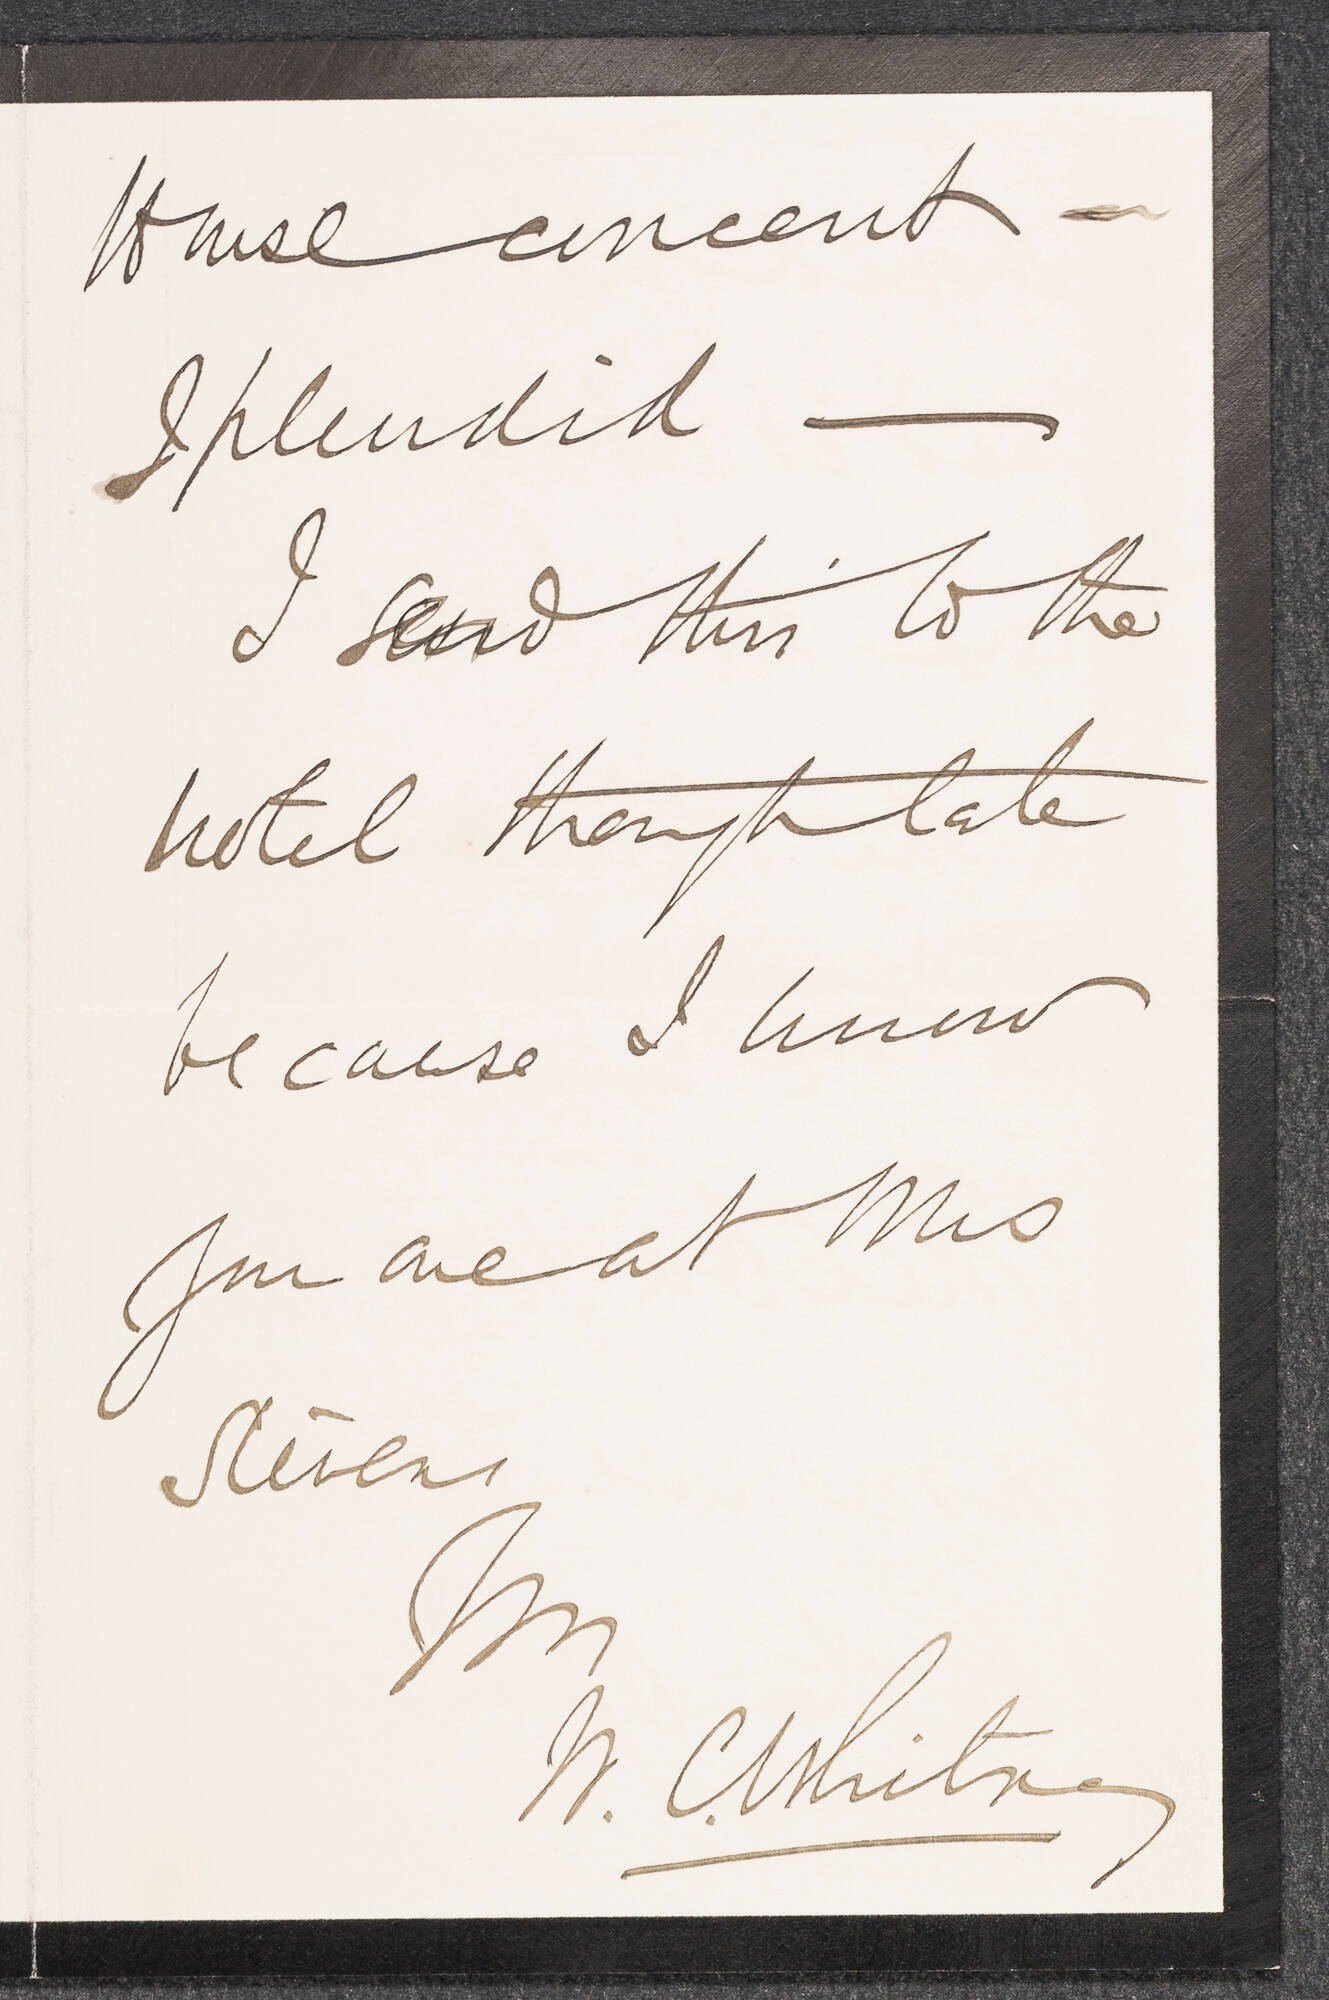 House concert —
Splendid —
I send this to the
hotel though late
because I know
you are at Mrs
Stevens
Yrs
W. C. Whitney